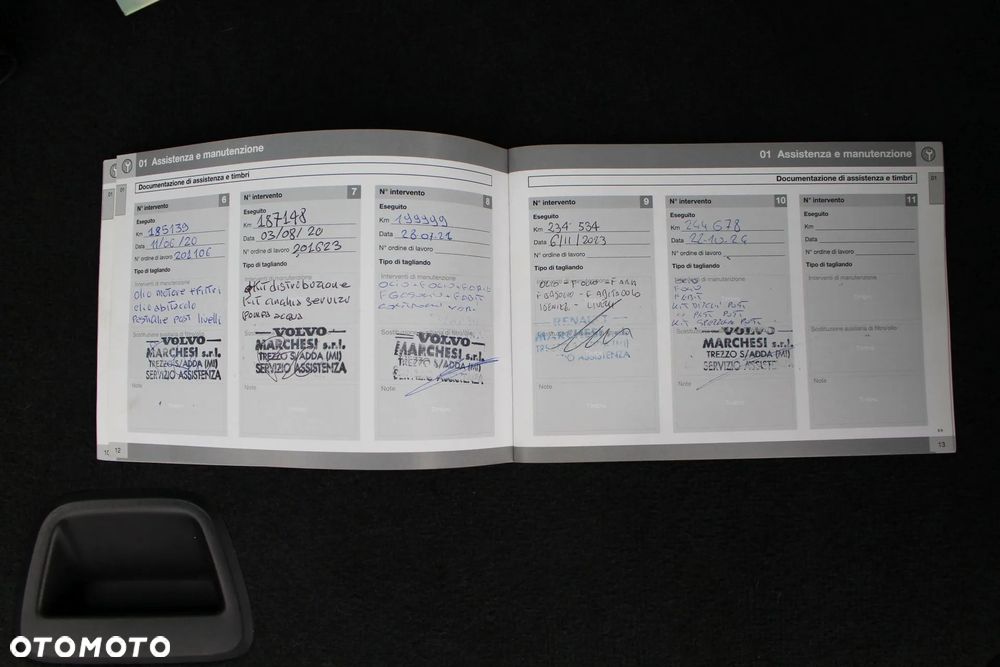 01 Assistenza e manutenzione
Documentazione di assistenza e timbri
01
01
N° intervento 6
Eseguito
Km 185139
Data 11/06/20
N° ordine di lavoro 201106
Tipo di tagliando
Interventi di manutenzione
Olio motore + filtri
clio abitacolo
pastiglie post livelli
Sostituzione ausiliaria di filtro/olio
VOLVO
MARCHESI s.r.l.
TREZZO S/ADDA (MI)
SERVIZIO ASSISTENZA
Note
Timbro
N° intervento 7
Eseguito
Km 187148
Data 03/08/20
N° ordine di lavoro 201623
Tipo di tagliando
Kit distribuzione
Kit cinghia servizi
pompa acqua
VOLVO
MARCHESI s.r.l.
TREZZO S/ADDA (MI)
SERVIZIO ASSISTENZA
Note
Timbro
N° intervento 8
Eseguito
Km 199999
Data 28.07.21
N° ordine di lavoro
Tipo di tagliando
Interventi di manutenzione
OLIO - F.OLIO - F.ARIA
F.GASOLIO - F.ABIT
Sostituzione ausiliaria di filtro/olio
VOLVO
MARCHESI s.r.l.
TREZZO S/ADDA (MI)
SERVIZIO ASSISTENZA
Timbro
12
01 Assistenza e manutenzione
Documentazione di assistenza e timbri
01
N° intervento 9
Eseguito
Km 234 534
Data 6/11/2023
N° ordine di lavoro
Tipo di tagliando
Interventi di manutenzione
OLIO - F.OLIO - F.ARIA
F.GASOLIO - F.ABITACOLO
RENAULT
MARCHESI
ASSISTENZA
Note
Timbro
N° intervento 10
Eseguito
Km 244 678
Data 22.10.24
N° ordine di lavoro
Tipo di tagliando
Interventi di manutenzione
OLIO
F.OLIO
F.ABIT
KIT DISCHI POST
PAST POST
KIT SPAZZOLE POST
VOLVO
MARCHESI s.r.l.
TREZZO S/ADDA (MI)
SERVIZIO ASSISTE
Note
Timbro
N° intervento 11
Eseguito
Km
Data
N° ordine di lavoro
Tipo di tagliando
Interventi di manutenzione
Sostituzione ausiliaria di filtro/olio
Note
Timbro
13
OTOMOTO